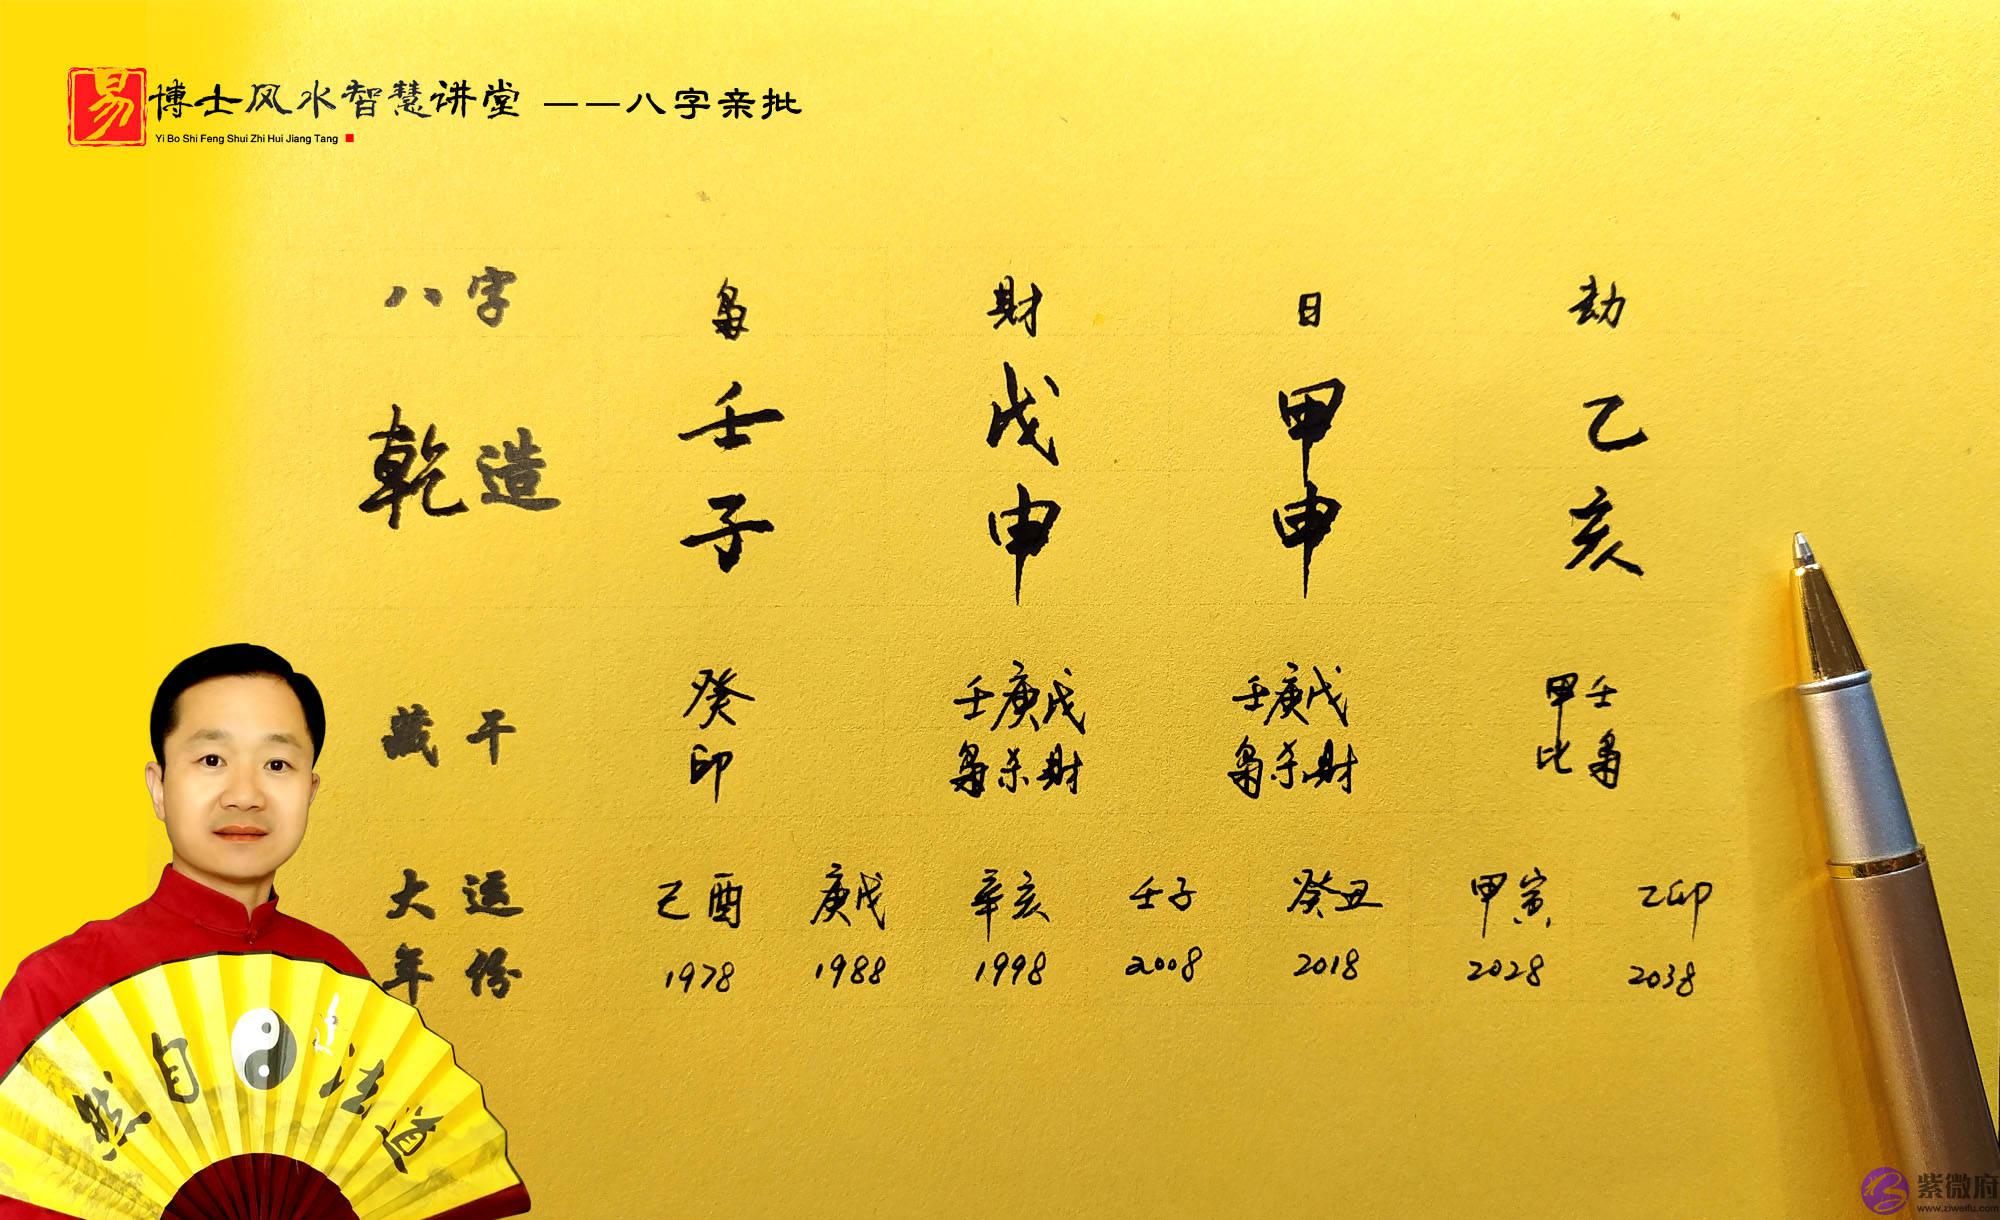 易博士风水智慧讲堂 ——八字亲批
Yi Bo Shi Feng Shui Zhi Hui Jiang Tang
八字 枭 财 日 劫
乾造 壬 戊 甲 乙
子 申 申 亥
藏干 癸 壬庚戊 壬庚戊 甲壬
印 枭杀财 枭杀财 比枭
大运 己酉 庚戌 辛亥 壬子 癸丑 甲寅 乙卯
年份 1978 1988 1998 2008 2018 2028 2038
道法自然
紫微府
www.ziweifu.com